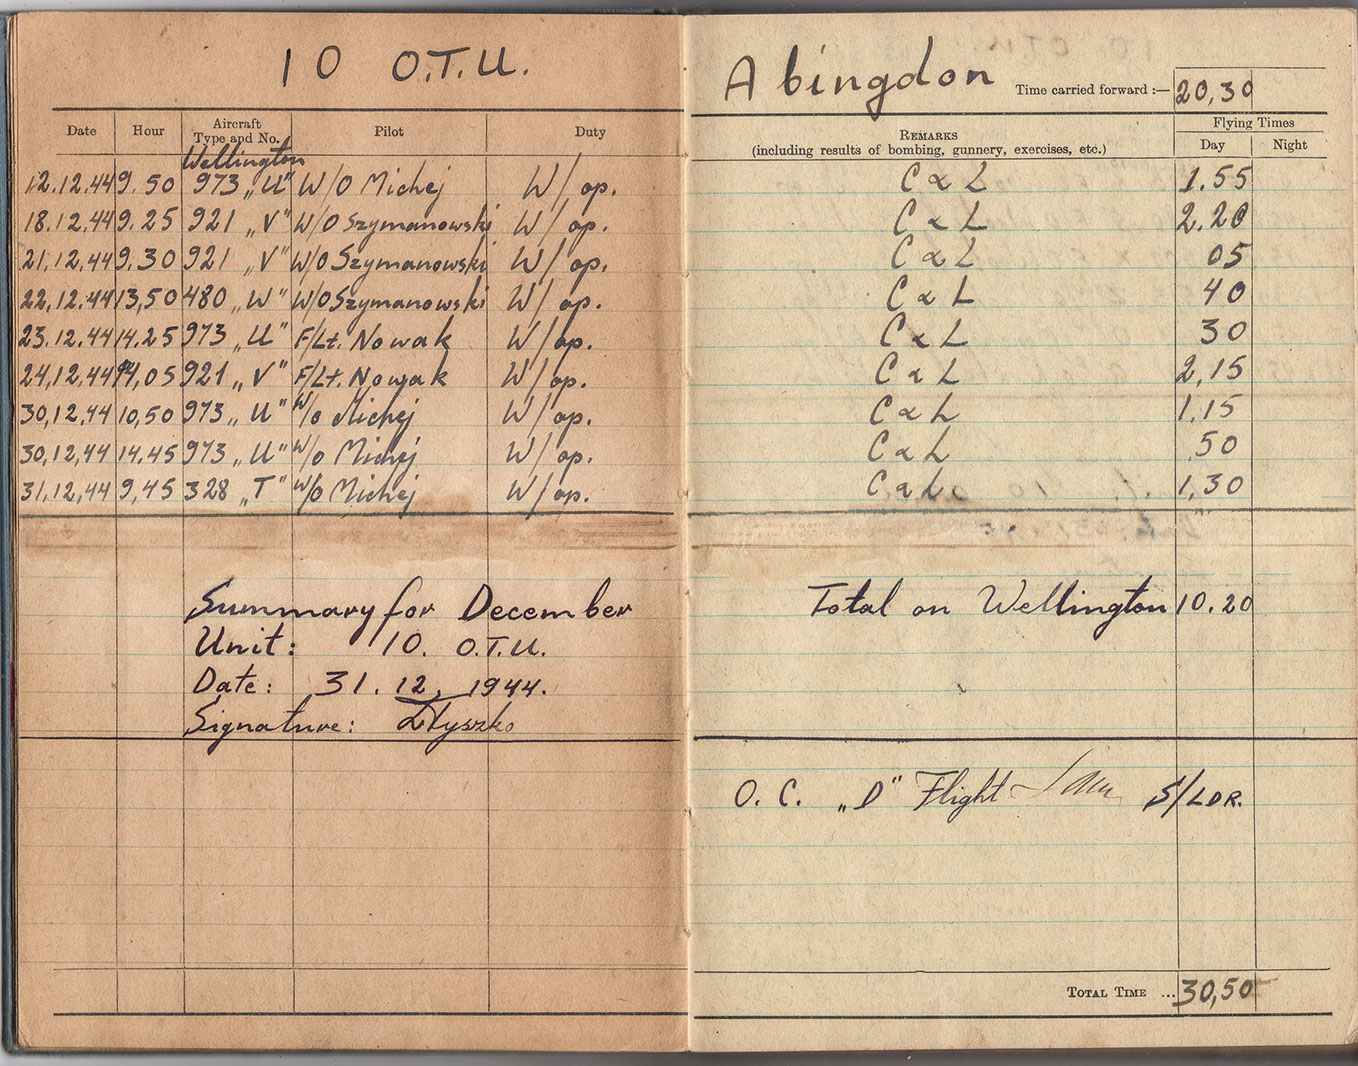 10 O.T.U.
Abingdon Time carried forward :— 20,30
Date Hour Aircraft Type and No. Pilot Duty REMARKS (including results of bombing, gunnery, exercises, etc.) Flying Times Day Night
Wellington
12.12.44 9.50 973 „U" W/O Michej W/op. C & L 1.55
18.12.44 9.25 921 „V" W/O Szymanowski W/op. C & L 2.20
21.12.44 9.30 921 „V" W/O Szymanowski W/op. C & L 05
22.12.44 13,50 480 „W" W/O Szymanowski W/op. C & L 40
23.12.44 14.25 973 „U" F/Lt. Nowak W/op. C & L 30
24.12.44 14,05 921 „V" F/Lt. Nowak W/op. C & L 2,15
30,12.44 10,50 973 „U" W/o Michej W/op. C & L 1,15
30,12,44 14.45 973 „U" W/o Michej W/op. C & L 50
31,12,44 9,45 328 „T" W/O Michej W/op. C & L 1,30
Summary for December
Unit: 10. O.T.U.
Date: 31.12.1944.
Signature: Dłyszko
Total on Wellington 10.20
O. C. „D" Flight S/LDR.
TOTAL TIME ... 30,50